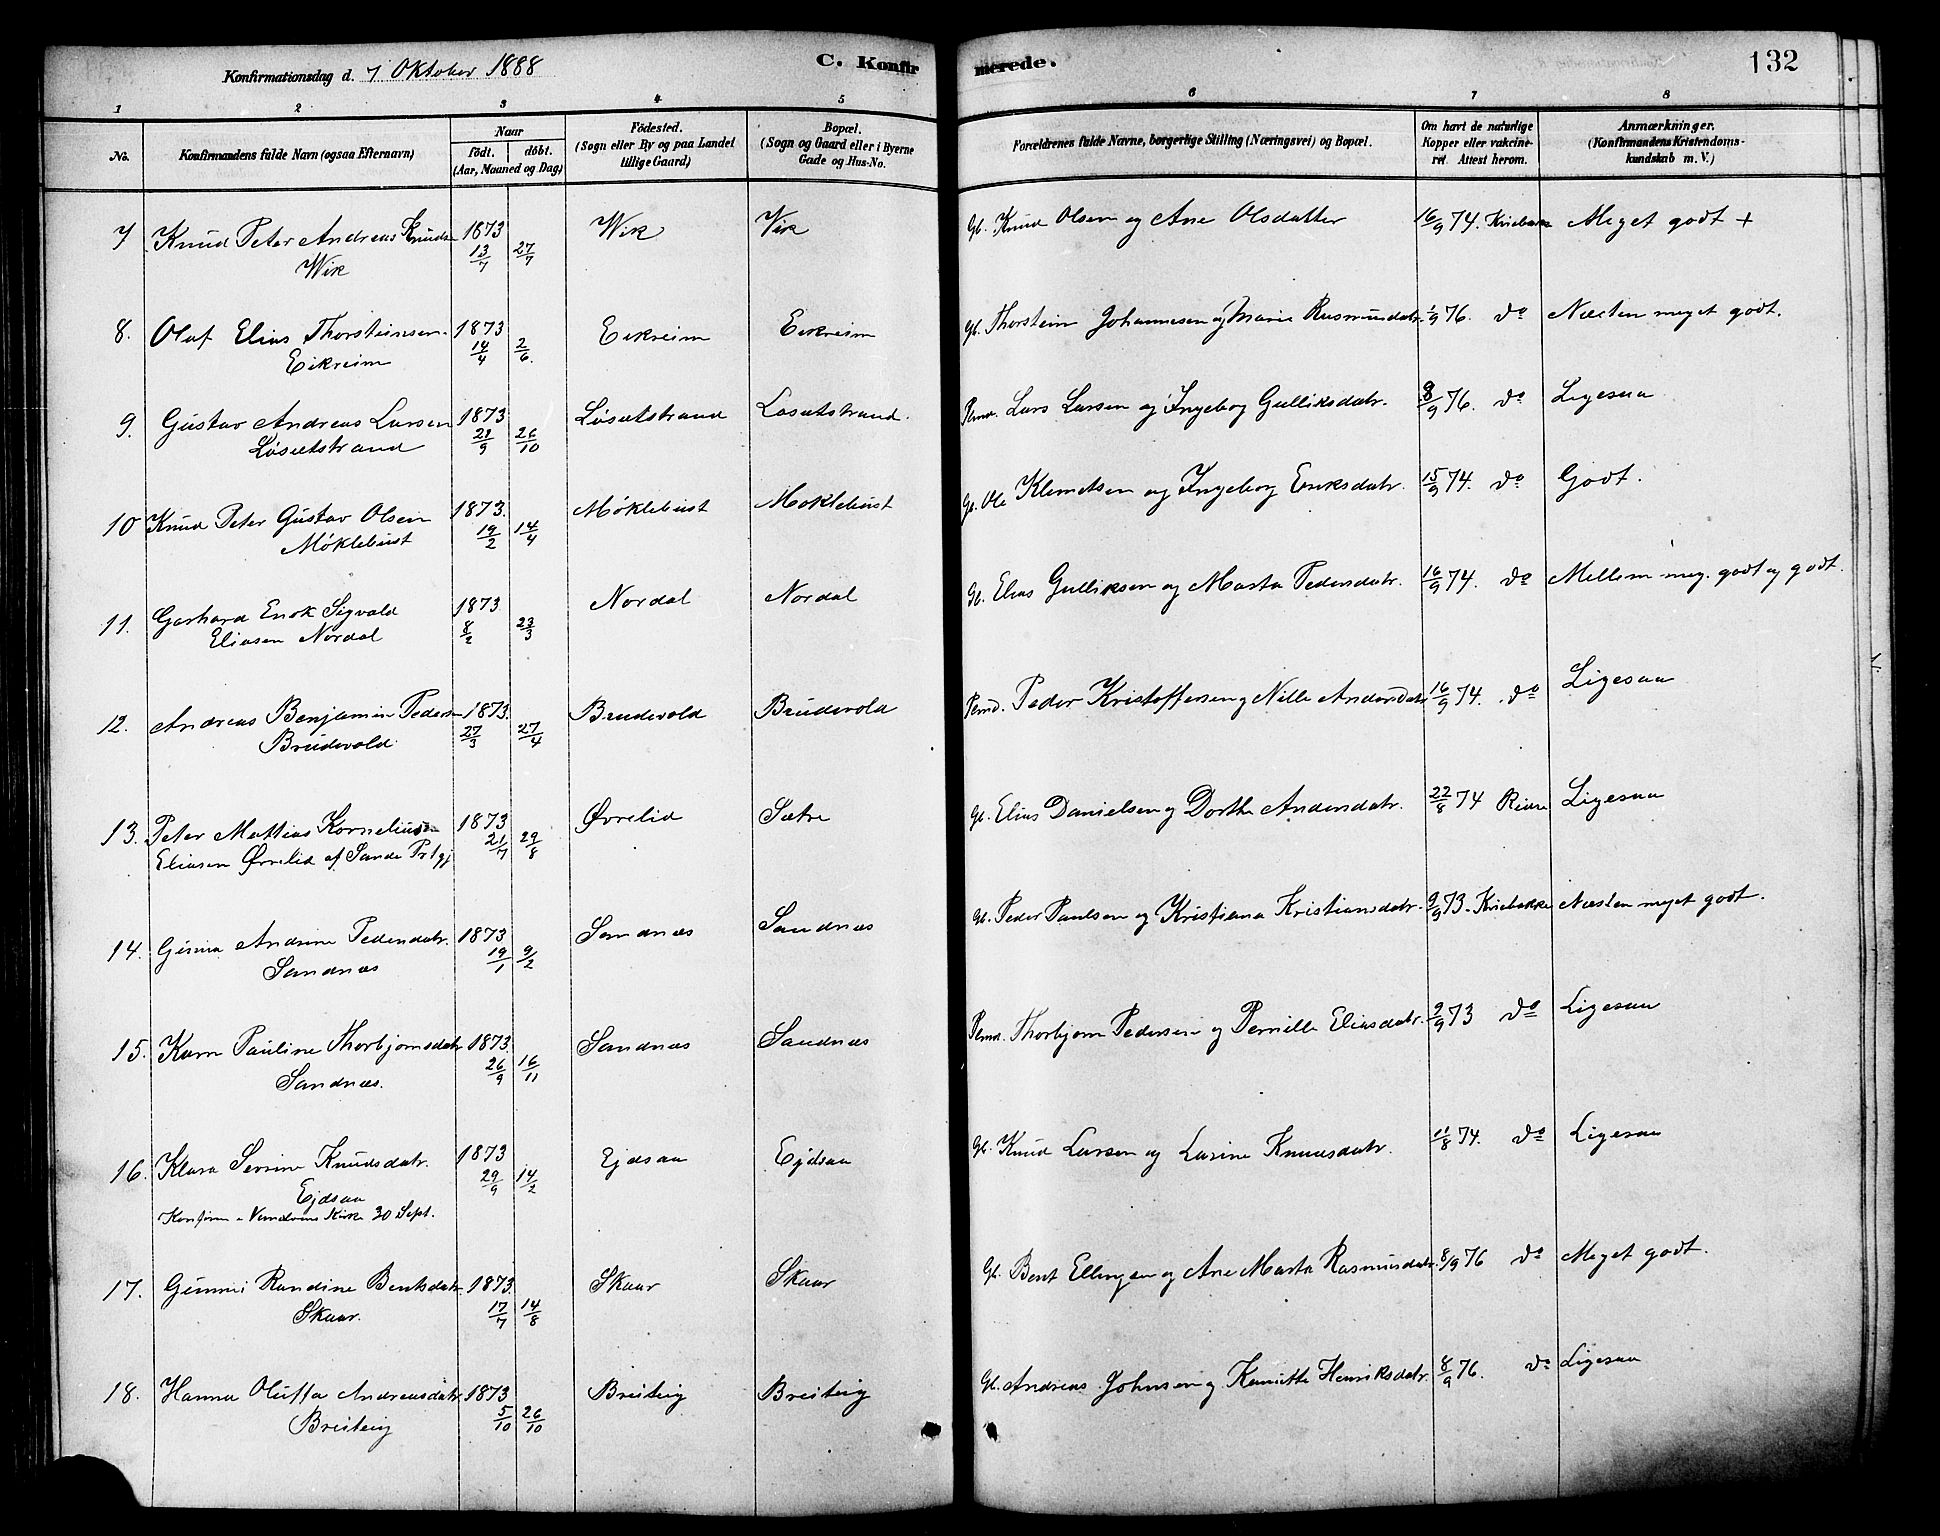 Konfirmationsdag d. 7 Oktober 1888
C. Konfirmerede.
132
1 2 3 4 5 6 7 8
No. Konfirmandens fulde Navn (ogsaa Efternavn)
Naar födt. döbt. (Aar, Maaned og Dag)
Födested. (Sogn eller By og paa Landet tillige Gaard)
Bopæl. (Sogn og Gaard eller i Byerne Gade og Hus-No.
Forældrenes fulde Navne, borgerlige Stilling (Næringsvei) og Bopæl.
Om havt de naturlige Kopper eller vakcineret Attest herom.
Anmærkninger. (Konfirmandens Kristendomskundskab m. V.)
7 Knud Peter Andreas Knuds 1873 Wik Vik Gb. Knud Olsen og Ane Olsdatter 16/9 74. Meget godt +
Wik 13/7 27/7
8. Oluf Elias Thorsteinsen 1873 Eikreim Eikreim Gb. Thorstein Johannesen og Marie Rasmusdatr. 1/9 76. do Næsten meget godt.
Eikreim 14/4 2/6.
9. Gustav Andreas Larsen 1873 Løsætstrand Løsætstrand. Pmd. Lars Larsen og Ingeborg Gulliksdatr. 8/9 76. do Ligesaa
Løsætstrand 21/9 26/10
10 Knud Peter Gustav Olsen 1873. Møklebust Møklebust Gb. Ole Klemetsen og Ingeborg Eriksdatr. 15/9 74. do Godt.
Møklebust 19/2 14/4
11. Gerhard Enok Sigvald 1873 Nordal Nordal Gb. Elias Gulliksen og Marta Pedersdatr. 16/9 74. do Mellem meg. godt og godt.
Eliasen Nordal 8/2 23/3
12. Andreas Benjamin Peders 1873. Brudevold Brudevold Pmd. Peder Kristoffersen og Nille Andersdatr 16/9 74. do Ligesaa
Brudevold 27/3 27/4
13. Peter Mattias Kornelius 1873 Øvrelid Sætre Gb. Elias Danielsen og Dorthe Andersdatr. 22/8 74 Ligesaa
Eliasen Øvrelid af Sande Prtgj 21/7 29/8
14. Andrine Pedersdatr. 1873 Sandnæs Sandnæs Gb. Peder Paulsen og Kristiana Kristiansdatr. 9/9 73. Næsten meget godt.
Sandnæs 19/1 9/2
15. Karn Pauline Thorbjørnsdatr 1873. Sandnæs Sandnæs Pmd. Thorbjørn Pedersen og Pernille Eliasdatr. 9/9 73 do Ligesaa
Sandnæs. 26/9 16/11
16. Klara Severine Knudsdatr. 1873 Ejdsaa Ejdsaa Gb. Knud Larsen og Larine Knudsdatr. 11/8 74. do Ligesaa
Ejdsaa 29/9 14/2
Konfirm. i Kirke 30 Sept.
17. Randine Bentsdatr 1873. Skaar Skaar Gb. Bent Ellingsen og Ane Marta Rasmusdatr. 8/9 76 do Meget godt.
Skaar. 17/7 14/8
18. Hanna Oluffa Andreasdatr 1873 Breiteig Breiteig Gb. Andreas Johnsen og Henriksdatr. 8/9 76. do Ligesaa
Breiteig 5/10 26/10